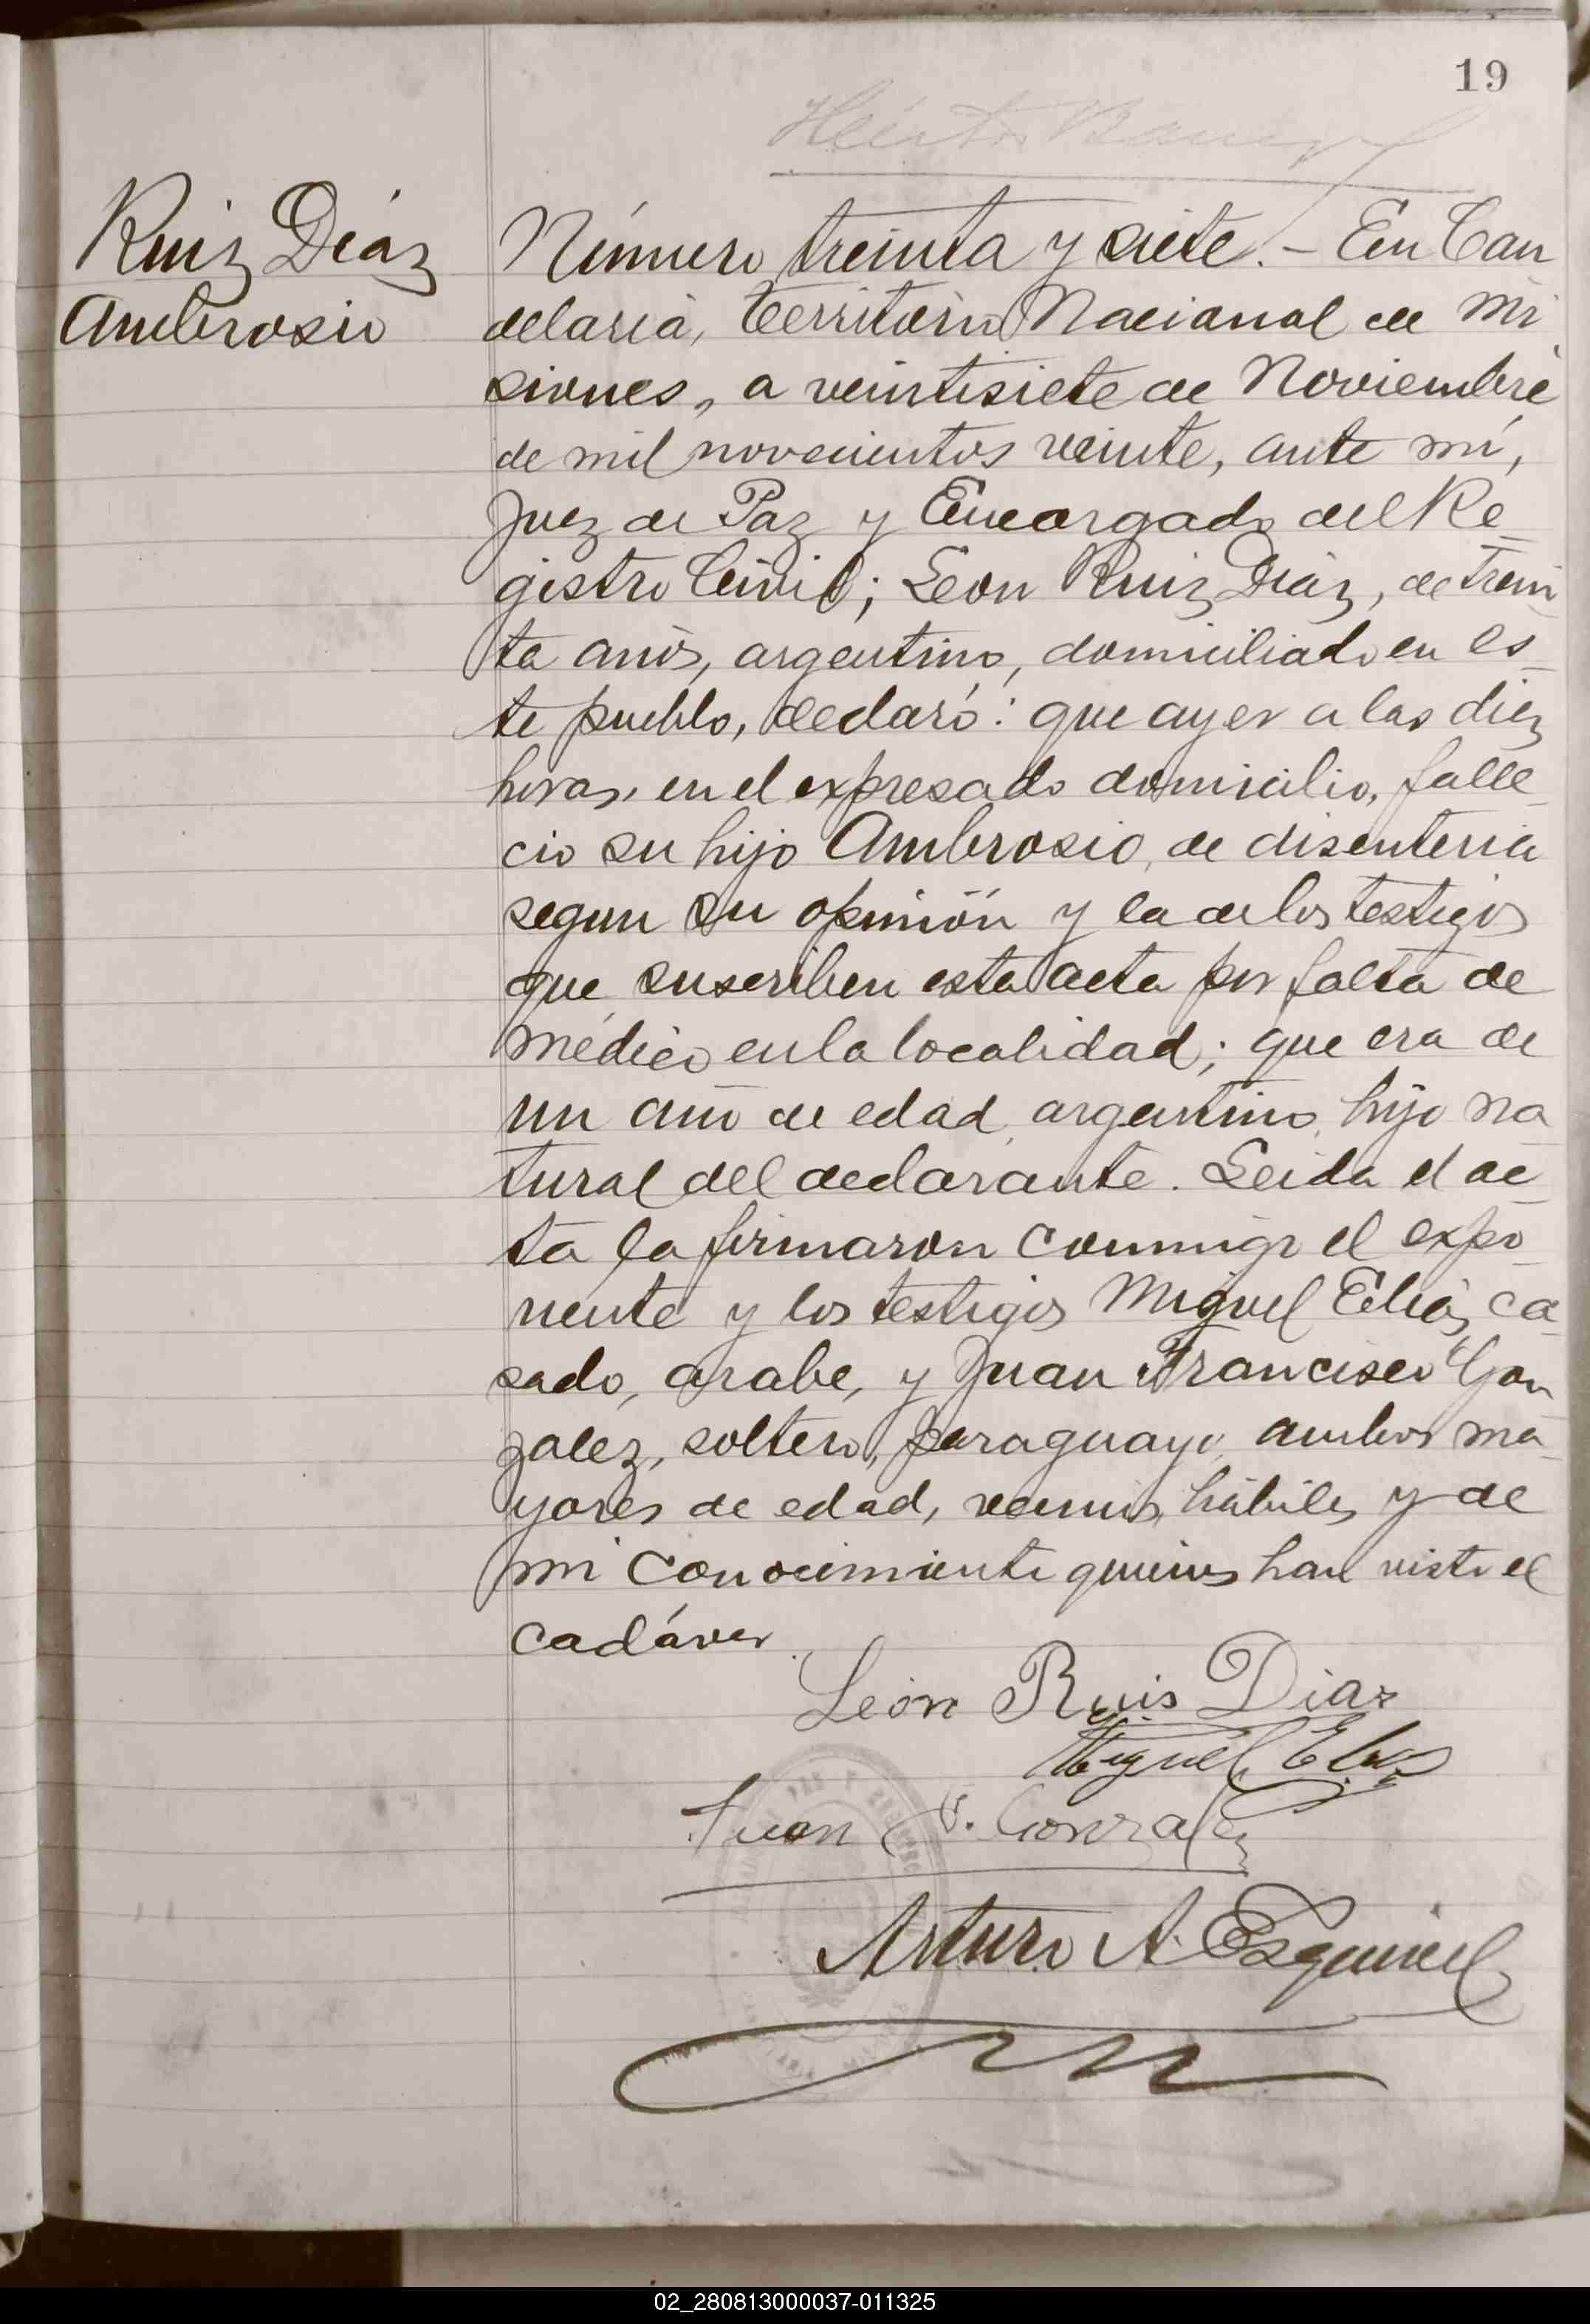 19
Ruiz Díaz
Ambrosio
Número treinta y siete.- En Can
delaria, territorio Nacional de Mi
siones, a veintisiete de Noviembre
de mil novecientos veinte, ante mí,
Juez de Paz y Encargado del Re
gistro Civil; Leon Ruiz Díaz, de trein
ta años, argentino, domiciliado en es
te pueblo, declaró: que ayer a las diez
horas, en el expresado domicilio, falle
cio su hijo Ambrosio, de disenteria
segun su opinión y la de los testigos
que suscriben esta acta por falta de
médico en la localidad; que era de
un año de edad, argentino, hijo na
tural del declarante. Leida el ac
ta la firmaron conmigo el expo
nente y los testigos Miguel Elias, ca
sado, arabe, y Juan Francisco Gon
zalez, soltero, paraguayo, ambos ma
yores de edad, vecinos, hábiles y de
mi conocimiento quienes han visto el
cadáver.
León Ruis Diaz
Miguel Elias
Juan F. Gonzalez
Arturo A. Esquivel
02_280813000037-011325